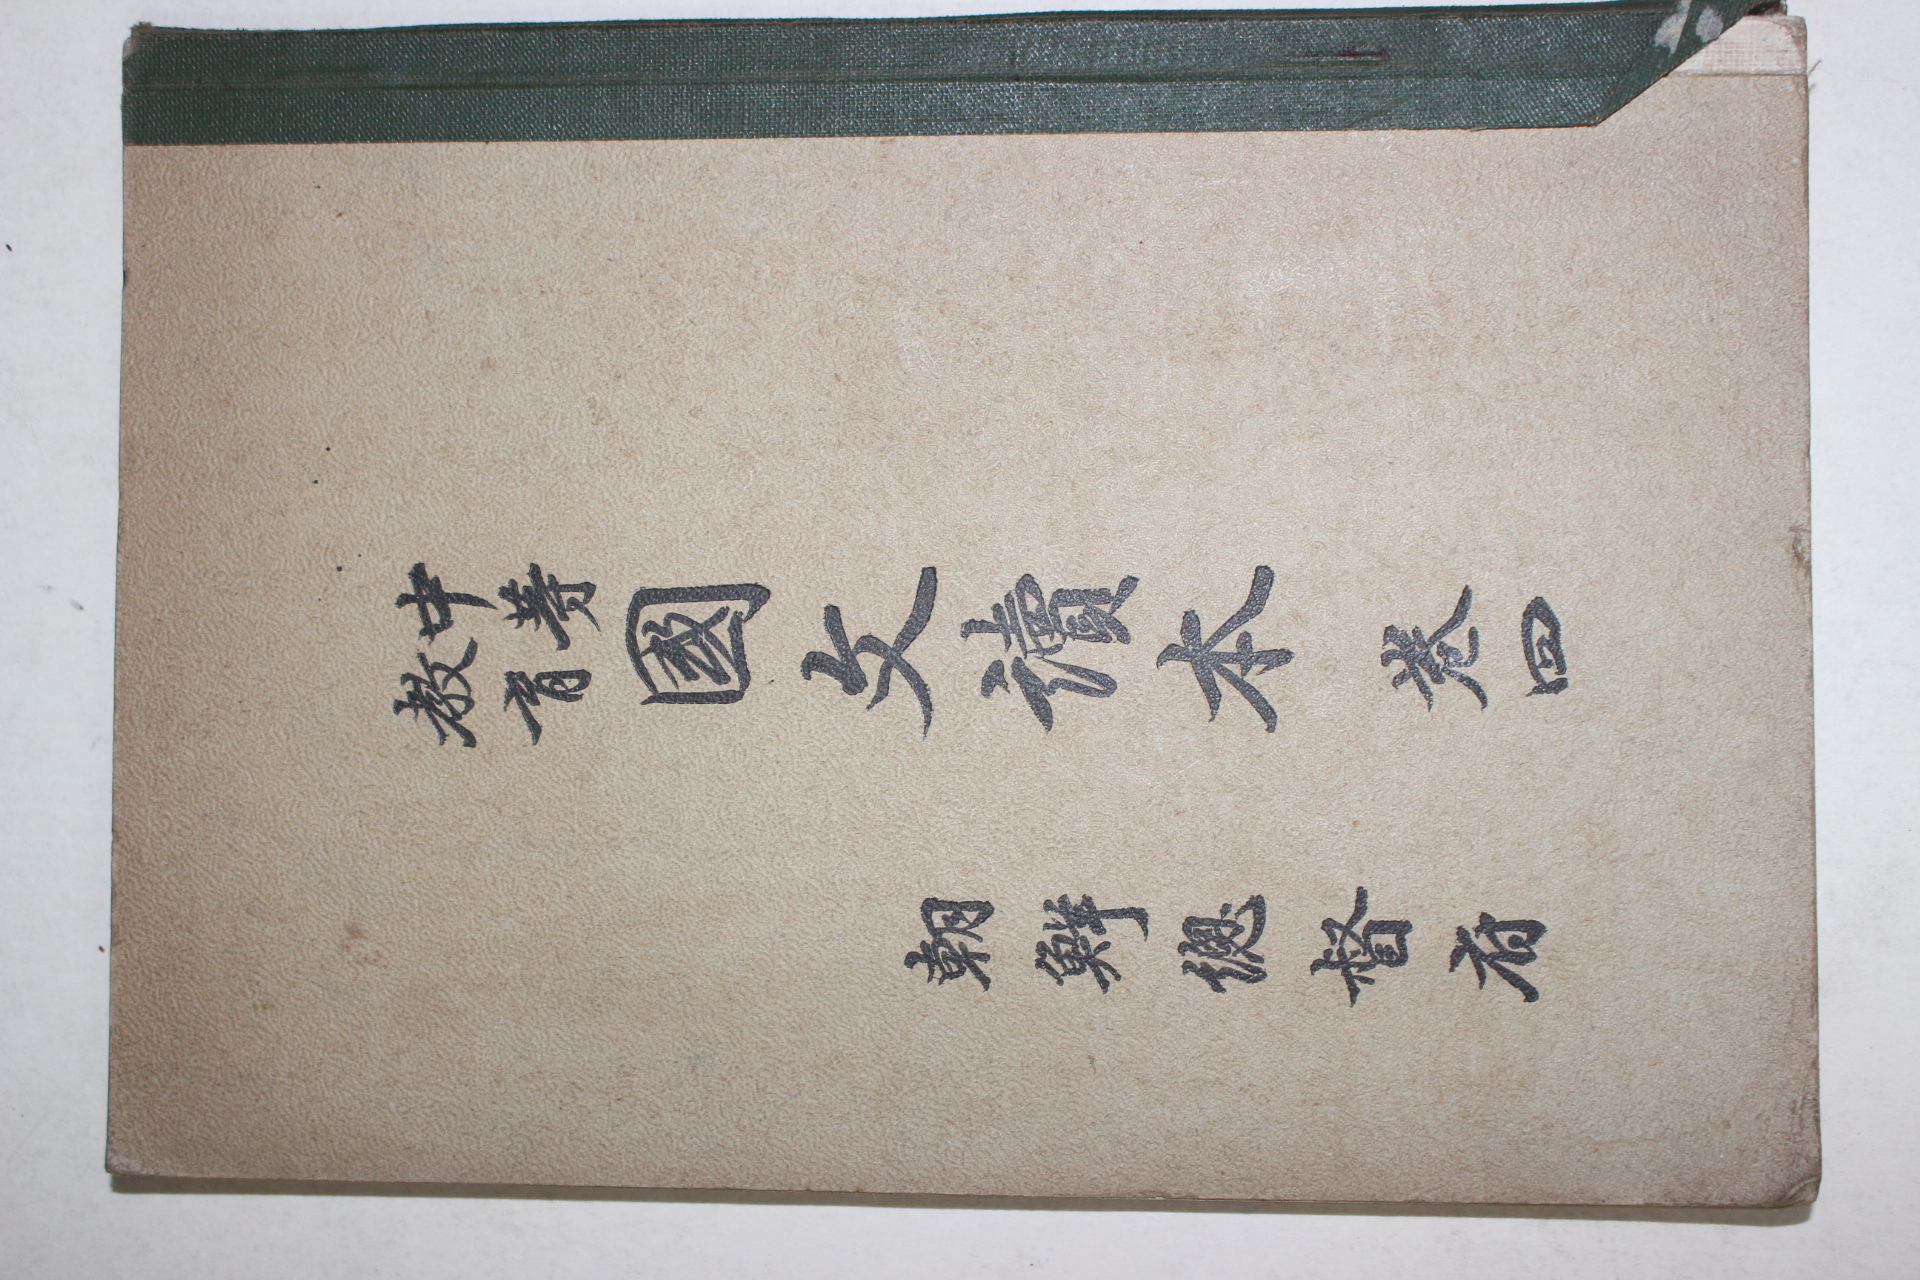 中等
教育
國文讀本 卷四
朝鮮總督府